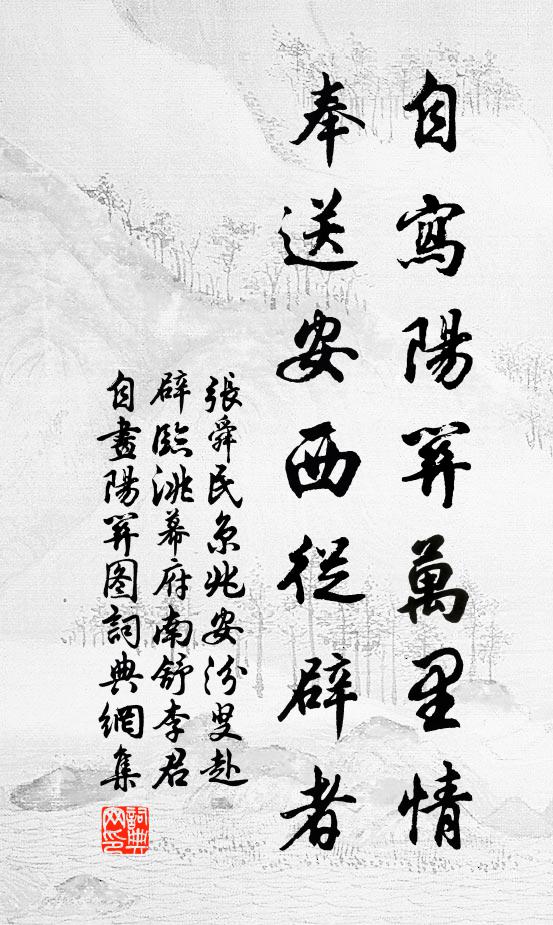 自寫陽關萬里情
奉送安西從辟者
張舜民京兆安汾叟赴
辟臨洮幕府南舒李君
自畫陽關图詞典網集
詞典网印